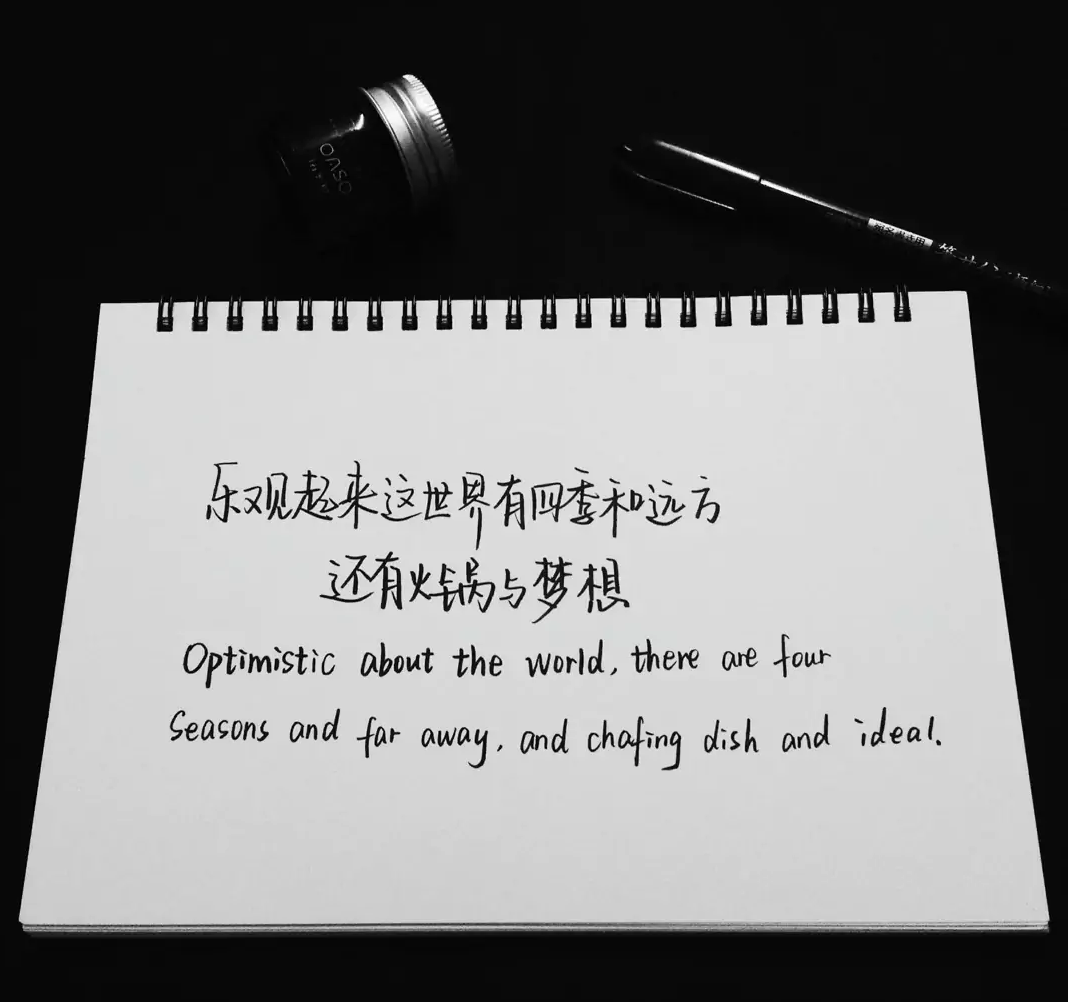 OASO
乐观起来这世界有四季和远方
还有火锅与梦想
Optimistic about the world, there are four
Seasons and far away, and chafing dish and ideal.